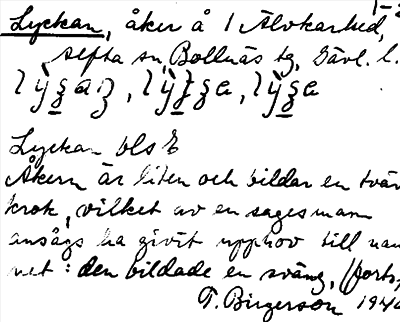 Lyckan, åker å 1 Älvkarhed,
Alfta sn, Bollnäs tg, Gävl. l.
Lyckan bls E
Åkern är liten och bildar en tvär
krok, vilket av en sagesmann
ansågs ha givit upphov till nam
net: den bildade en sväng, (forts,
T. Birgerson 194